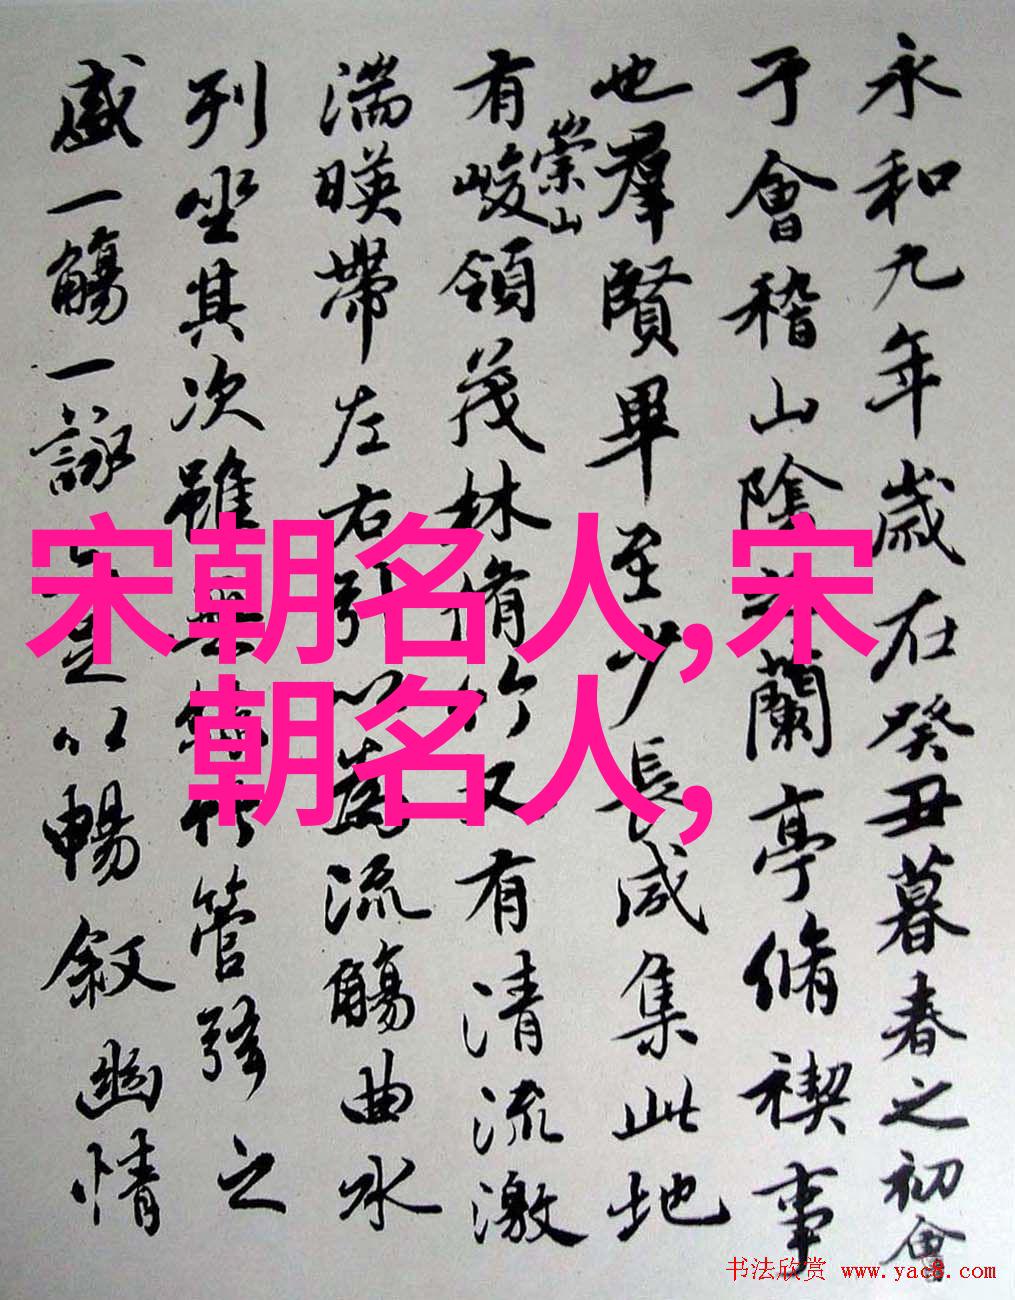 永和九年歲在癸丑暮春之初會
于會稽山陰之蘭亭脩禊事
也羣賢畢至少長咸集此地
有崇山峻領茂林脩竹又有清流激
湍暎帶左右引以為流觴曲水
列坐其次雖無絲竹管弦之
盛一觴一詠亦足以暢敘幽情
宋朝名人,宋
朝名人,
书法欣赏 www.yac8.com